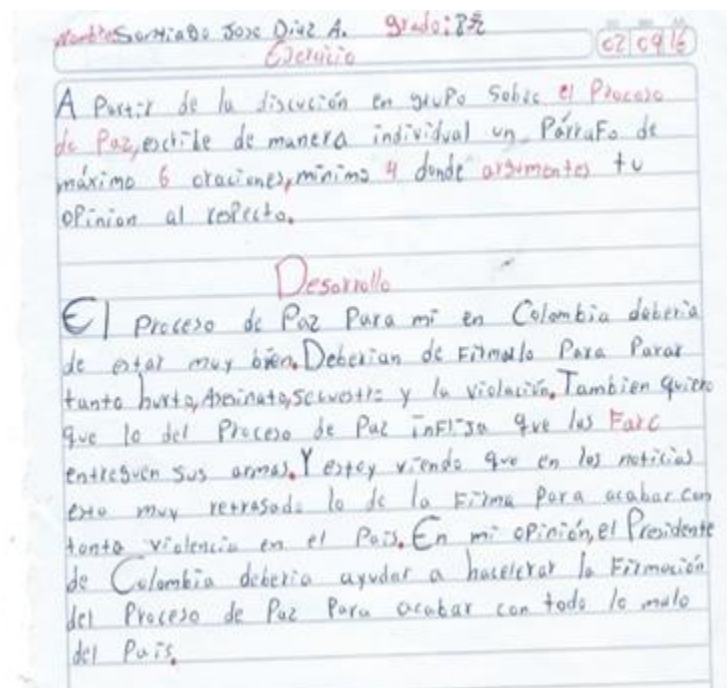 Nombre: Santiago Jose Diaz A. grado: 8
Ejercicio
02 09 16
A Partir de la discución en grupo sobre el Proceso
de Paz, escribe de manera individual un Párrafo de
máximo 6 oraciones, minimo 4 donde argumentes tu
opinion al respecto.
Desarrollo
El Proceso de Paz Para mi en Colombia deberia
de estar muy bien. Deberian de Firmarlo Para Parar
tanto hurto, Asesinato, secuestro y la violación. Tambien quiero
que lo del Proceso de Paz influya que las Farc
entreguen sus armas. Y estoy viendo que en las noticias
esta muy retrasado lo de la Firma para acabar con
tanta violencia en el Pais. En mi opinión, el Presidente
de Colombia deberia ayudar a hacelerar la Firmación
del Proceso de Paz Para acabar con todo lo malo
del Pais.